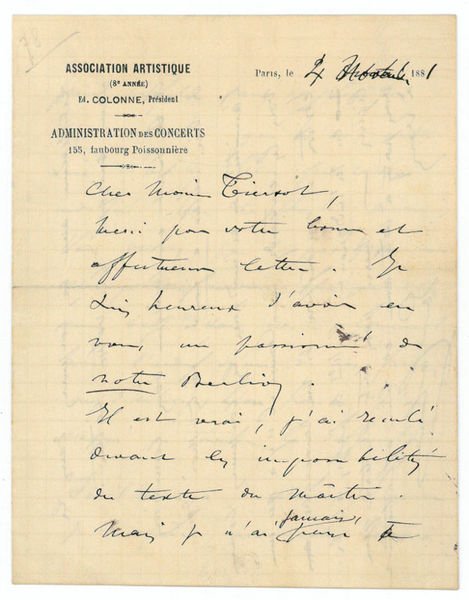 78
ASSOCIATION ARTISTIQUE
(8e ANNÉE)
Ed. COLONNE, Président
ADMINISTRATION DES CONCERTS
155, faubourg Poissonnière
Paris, le 4 Octobre 1881
Cher Monsieur Tiersot,
Merci pour votre bonne et
affectueuse lettre. Je
suis heureux d'avoir en
vous, un passionné de
notre Berlioz.
Il est vrai, j'ai reculé
devant les impossibilités
du texte du Maître.
Mais je n'ai jamais,